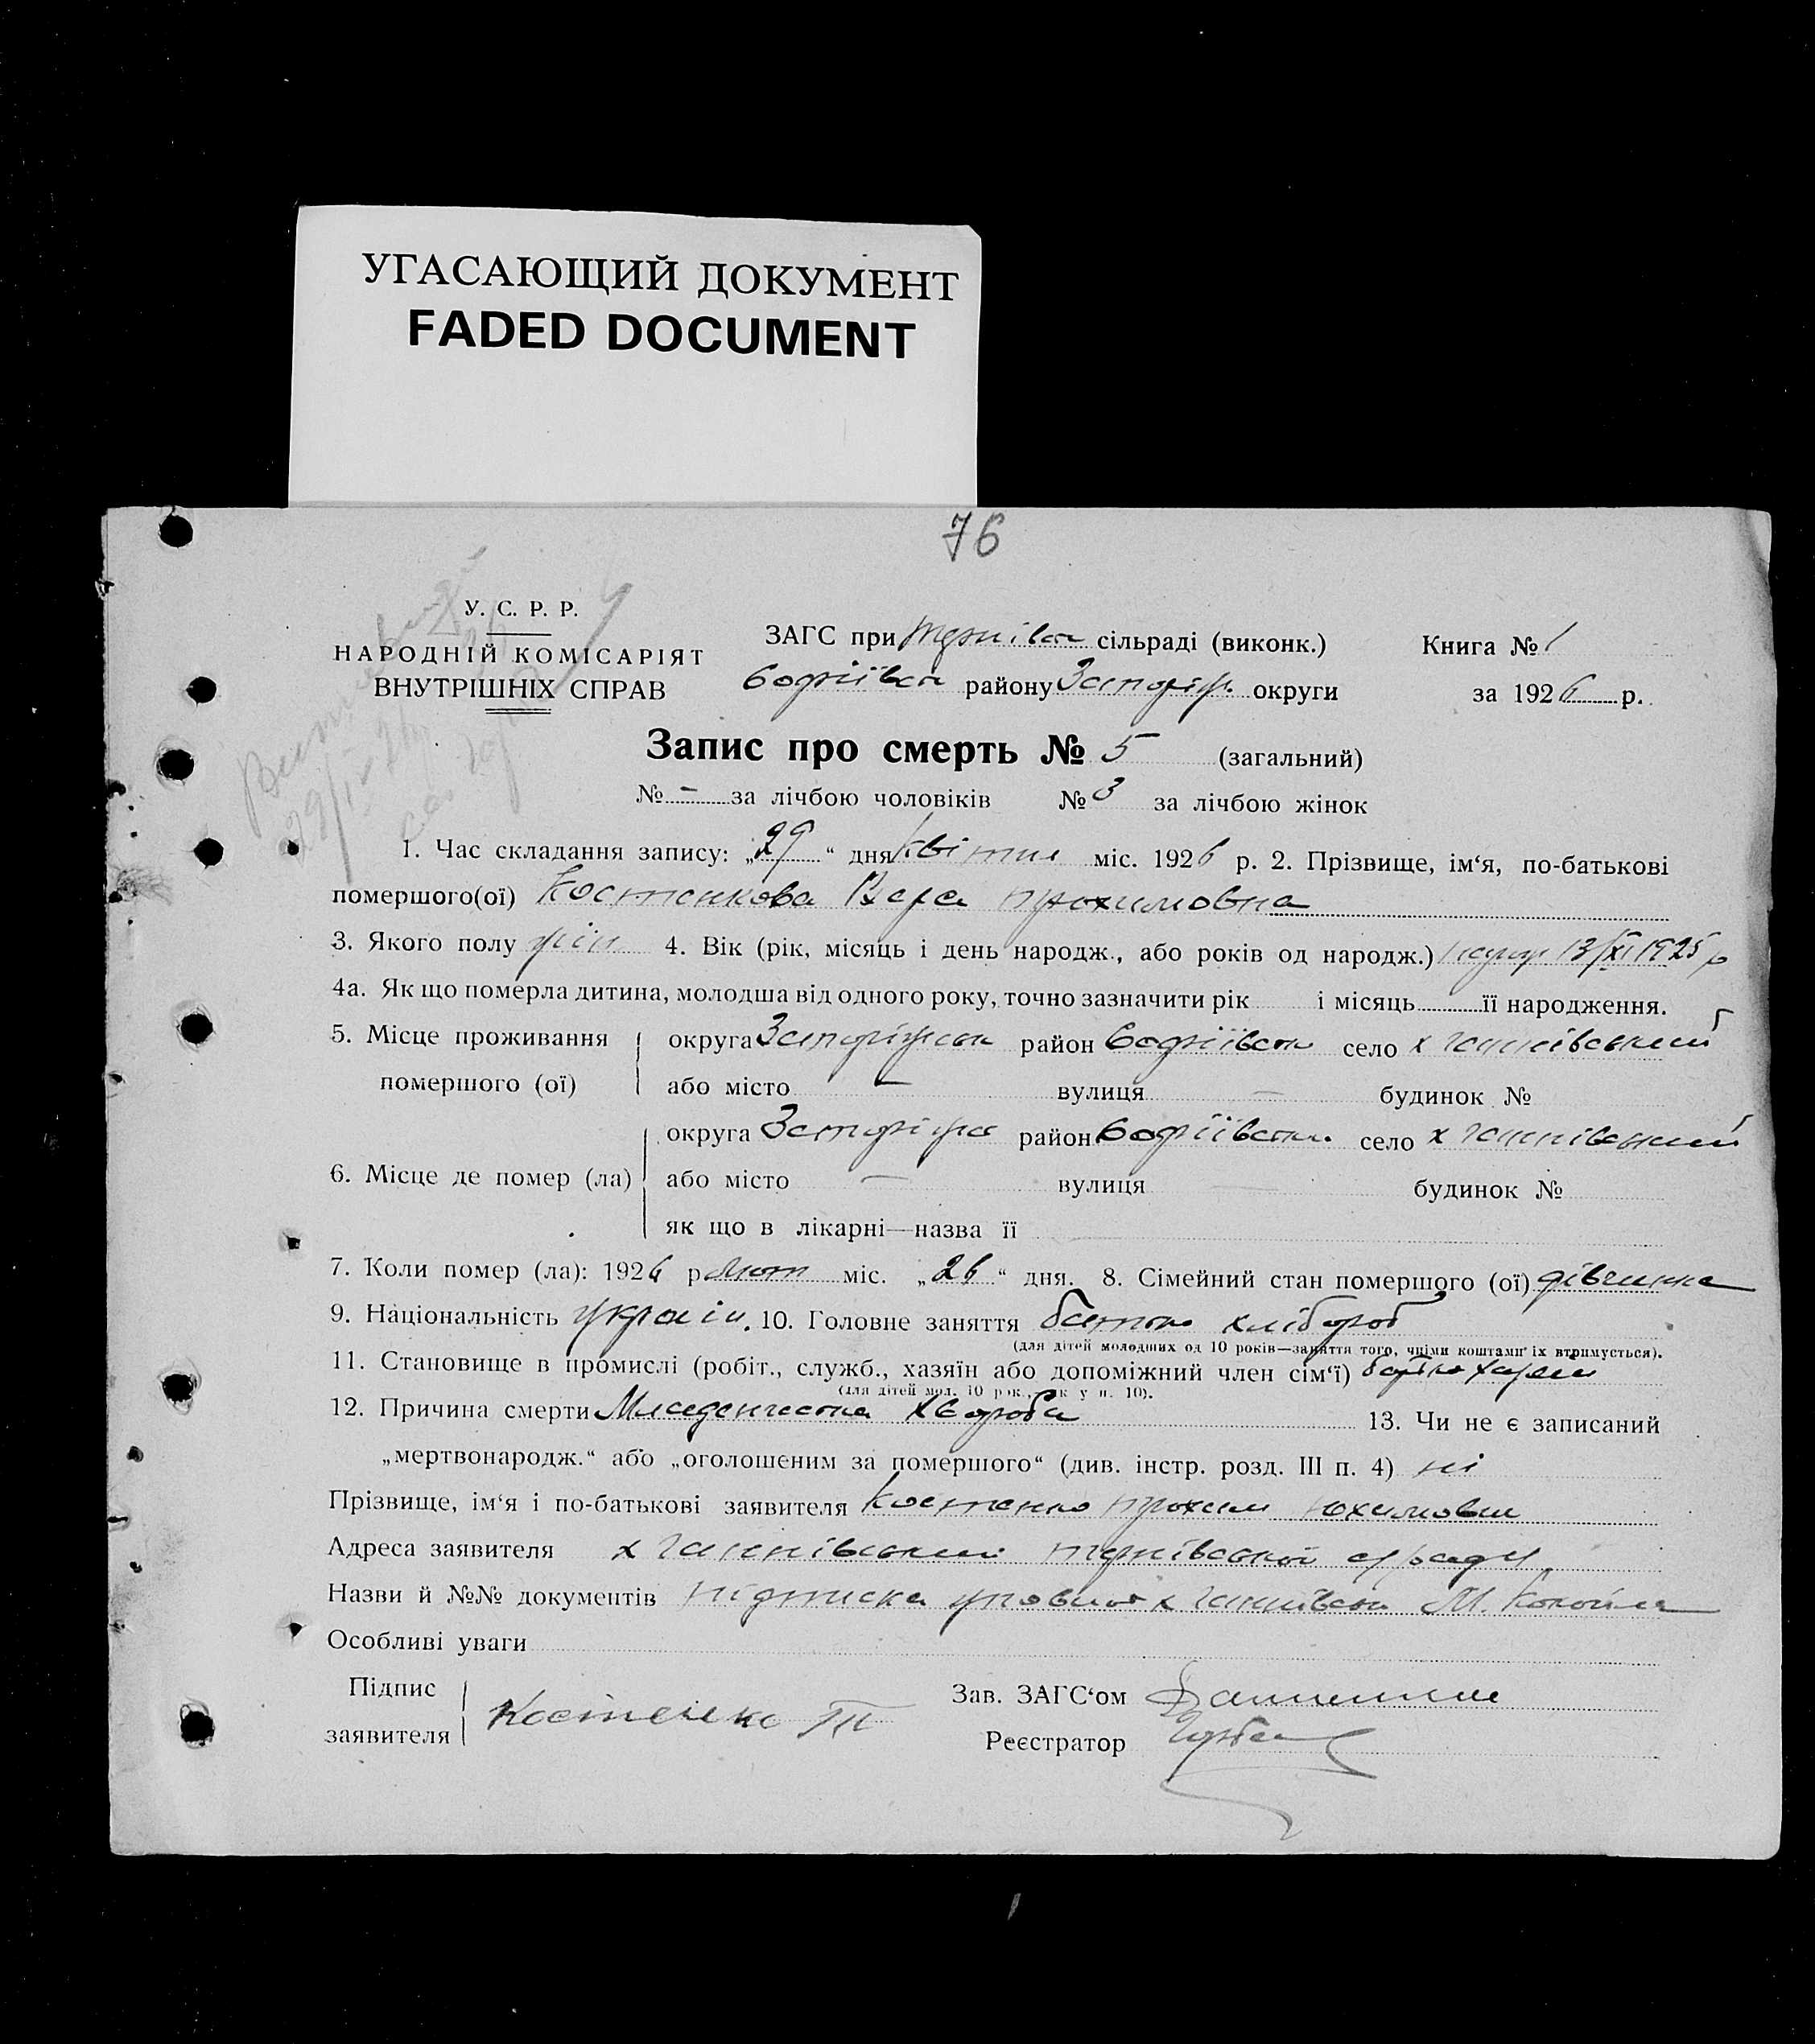 УГАСАЮЩИЙ ДОКУМЕНТ
FADED DOCUMENT
76
У. С. Р. Р.
НАРОДНІЙ КОМІСАРІЯТ
ВНУТРІШНІХ СПРАВ
ЗАГС при сільраді (виконк.)
району округи
Книга № 1
за 1926 р.
Запис про смерть № 5 (загальний)
№ - за лічбою чоловіків № 3 за лічбою жінок
1. Час складання запису: „29“ дня квітня міс. 1926 р. 2. Прізвище, ім‘я, по-батькові
помершого(ої) Костенкова Вера прохимовна
3. Якого полу жін 4. Вік (рік, місяць і день народж., або років од народж.) 13/XI 1925 р
4а. Як що померла дитина, молодша від одного року, точно зазначити рік і місяць її народження.
5. Місце проживання
помершого (ої)
округа район село х ганнівський
або місто — вулиця — будинок №
6. Місце де помер (ла)
округа район село х ганнівський
або місто — вулиця — будинок №
як що в лікарні—назва її
7. Коли помер (ла): 1926 р лют міс. „26“ дня. 8. Сімейний стан помершого (ої) дівчинка
9. Національність україн. 10. Головне заняття батько хлібороб
(для дітей молодших од 10 років—заняття того, чиїми коштами їх втримується).
11. Становище в промислі (робіт., служб., хазяїн або допоміжний член сім‘ї) батько хазяїн
(для дітей мол. 10 рок., як у п. 10).
12. Причина смерти Младенческа хвороба 13. Чи не є записаний
„мертвонародж.“ або „оголошеним за помершого“ (див. інстр. розд. III п. 4) ні
Прізвище, ім‘я і по-батькові заявителя Костенко прохим юхимович
Адреса заявителя х ганнівський тернівської с/ради
Назви й №№ документів підписка х ганнівськ М.
Особливі уваги
Підпис
заявителя
Костенко П
Зав. ЗАГС‘ом
Реєстратор